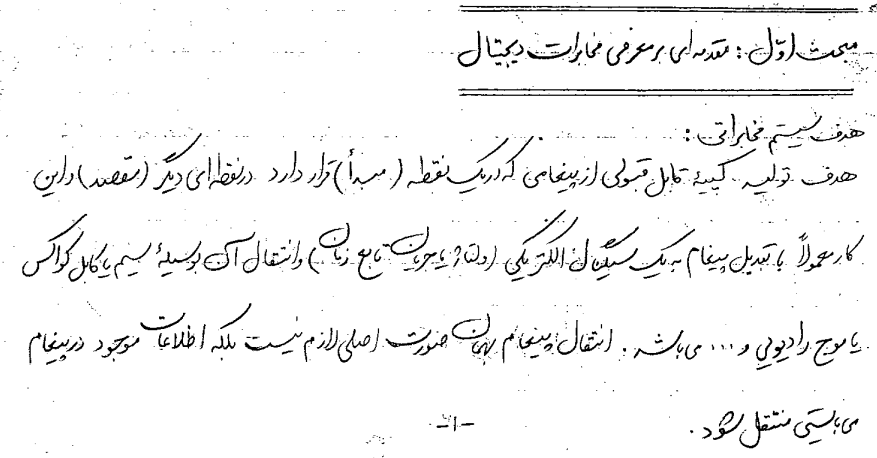 مبحث اوّل : مقدمه ای بر معرفی مخابرات دیجیتال
هدف سیستم مخابراتی :
هدف تولید کپیهٔ قابل قبولی از پیغامی که در یک نقطه (مبدأ) قرار دارد در نقطه ای دیگر (مقصد) و این
کار معمولاً با تبدیل پیغام به یک سیگنال الکتریکی (ولتاژ یا جریان تابع زمان) و انتقال آن بوسیلهٔ سیم یا کابل کواکس
یا موج رادیویی و ... می باشد . انتقال پیغام بهمان صورت اصلی لازم نیست بلکه اطلاعات موجود در پیغام
می بایستی منتقل شود .
-۱-